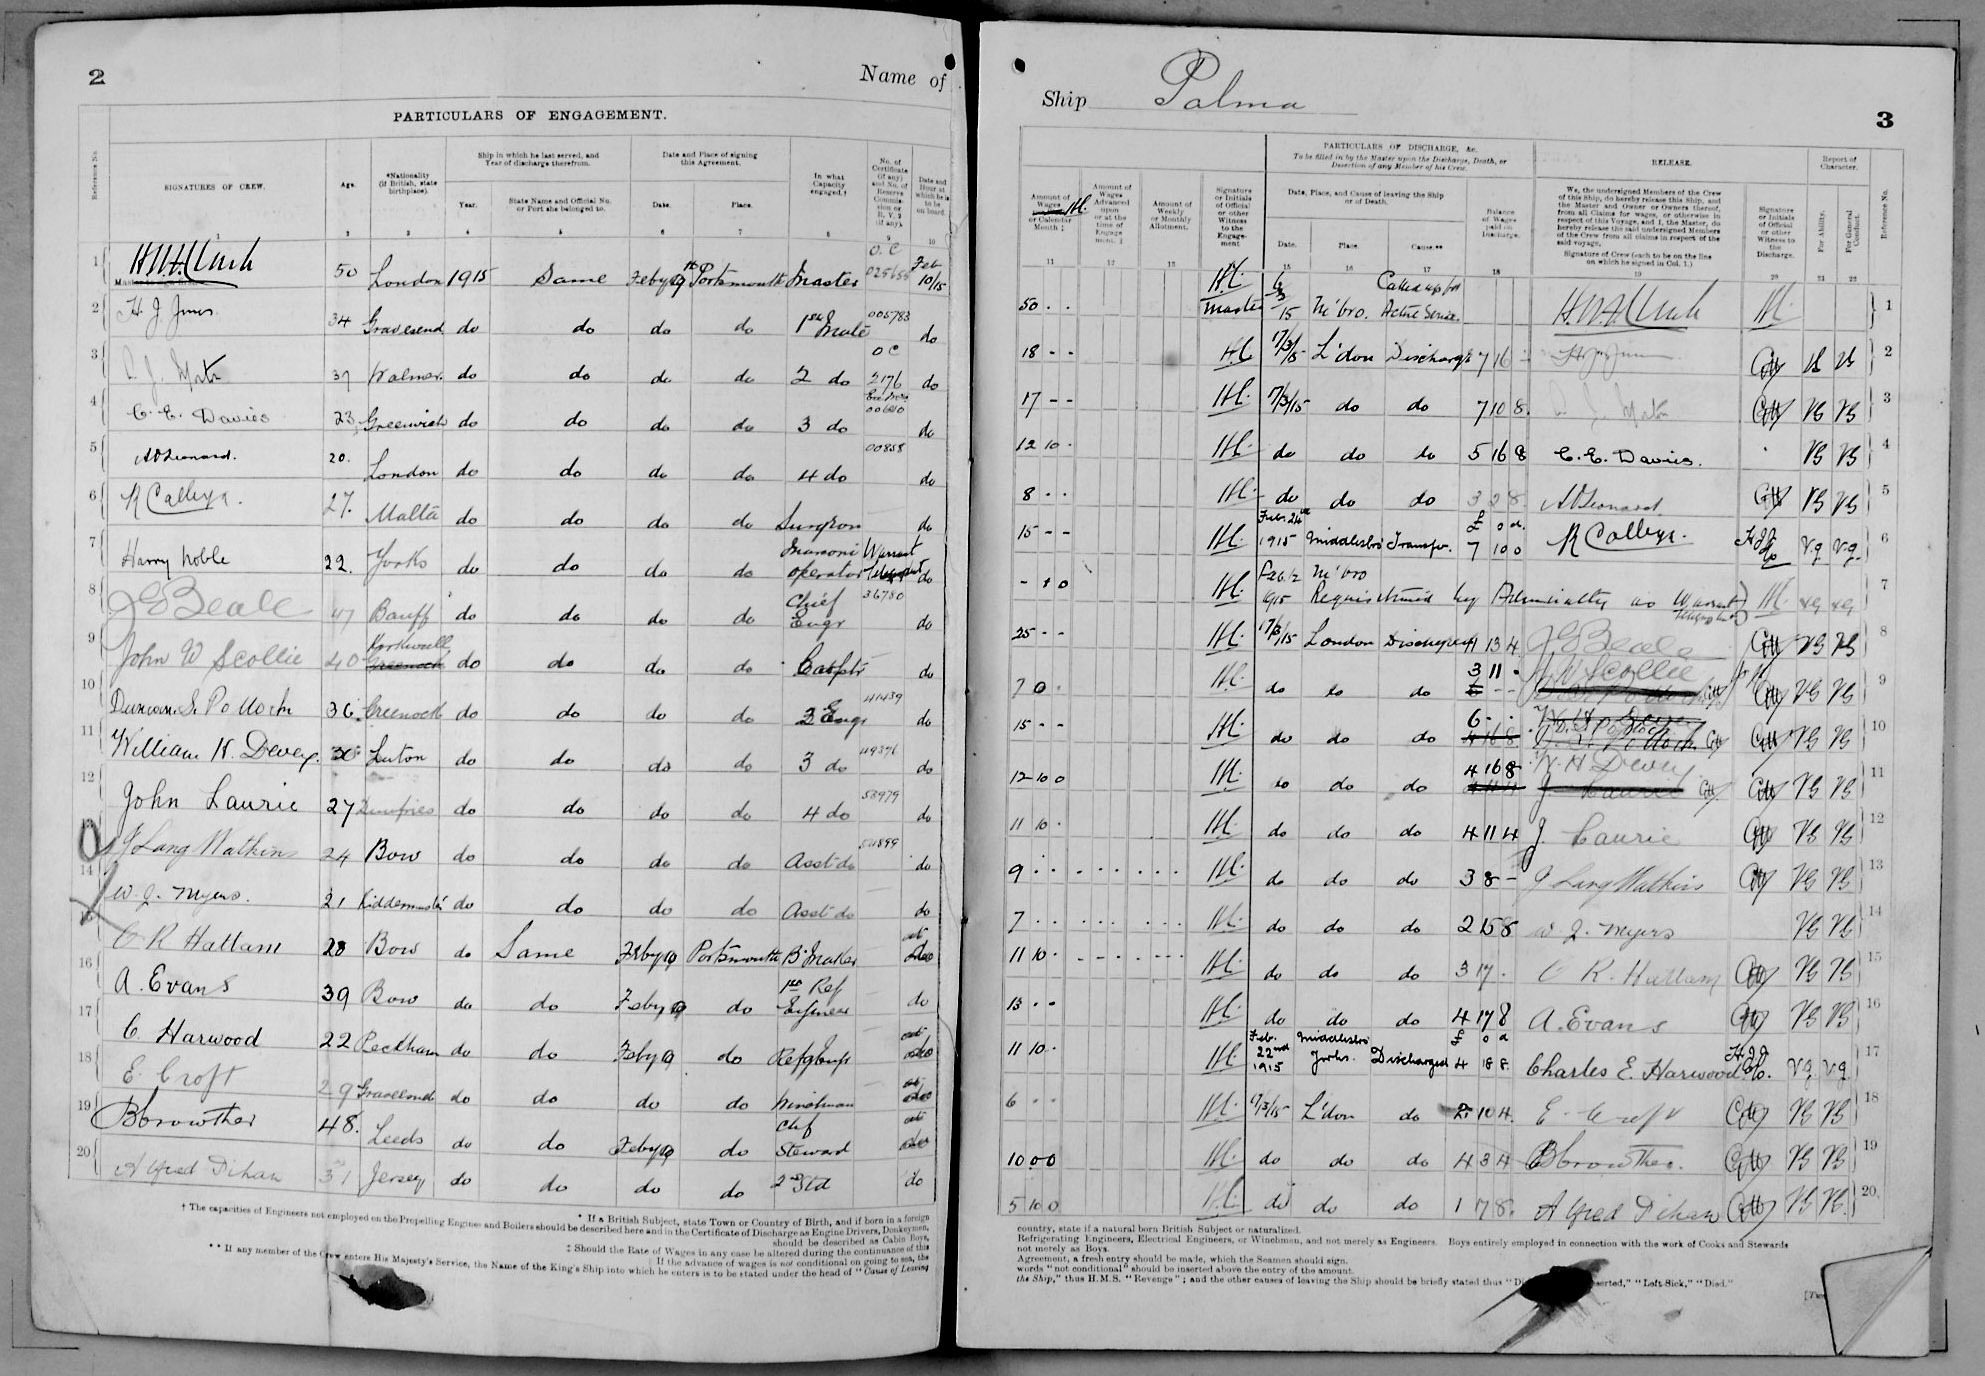 2
Name of
PARTICULARS OF ENGAGEMENT.
Reference No.
SIGNATURES OF CREW.
Age.
*Nationality (if British, state birthplace).
Ship in which he last served, and Year of discharge therefrom.
Year.
State Name and Official No. or Port she belonged to.
Date and Place of signing this Agreement.
Date.
Place.
In what Capacity engaged.†
No. of Certificate (if any) and No. of Reserve Commission or R.V.2 (if any).
Date and Hour at which he is to be on board.
1 2 3 4 5 6 7 8 9 10
1 50 London 1915 Same Feby 9th Portsmouth Master O.C Feb 10/15
2 H J Jones 34 Gravesend do do do do 1st Mate 005783 do
3 37 Walmer do do do do 2 do O C 2176 do
4 C. E. Davies 23 Greenwich do do do do 3 do do
5 A V Leonard. 20. London do do do do 4 do 00858 do
6 R Calleja. 27. Malta do do do do Surgeon do
7 Harry Noble 22. Yorks do do do do Marconi operator Warrant do
8 J G Beale 47 Banff do do do do Chief Engr 36780 do
9 John W Scollie 40 Greenock do do do do do
10 Duncan. S. Pollock 36. Greenock do do do do 2 Engr 41439 do
11 William H. Devey. Luton do do do do 3 do 49376 do
12 John Laurie 27 Dumfries do do do do 4 do 53979 do
J Lang Watkins 24 Bow do do do do Asst do do
14 W. J. Myers. 21 Kidderminster do do do do Asst do do
C R Hallam 28 Bow do Same Feby 9 Portsmouth B. Maker
16 A. Evans 39 Bow do do Feby 9 do 1st Ref Engineer do
17 C Harwood 22 Peckham do do Feby 9 do
18 E. Croft 29 Gravesend do do do do Winchman
19 B Crowther 48. Leeds do do Feby 9 do Chf Steward
20 Alfred Dihan 31 Jersey do do do do 2nd Std do
† The capacities of Engineers not employed on the Propelling Engines and Boilers should be described here and in the Certificate of Discharge as Engine Drivers, Donkeymen,
* If a British Subject, state Town or Country of Birth, and if born in a foreign
should be described as Cabin Boys,
‡ Should the Rate of Wages in any case be altered during the continuance of this
|| If the advance of wages is not conditional on going to sea, the
** If any member of the Crew enters His Majesty's Service, the Name of the King's Ship into which he enters is to be stated under the head of "Cause of Leaving
Ship Palma
3
Amount of Wages or Calendar Month ‡
Amount of Wages Advanced upon or at the time of Engagement. ‡
Amount of Weekly or Monthly Allotment.
Signature or Initials of Official or other Witness to the Engagement
PARTICULARS OF DISCHARGE, &c.
To be filled in by the Master upon the Discharge, Death, or Desertion of any Member of his Crew.
Date, Place, and Cause of leaving the Ship or of Death.
Date.
Place.
Cause.**
Balance of Wages paid on Discharge.
RELEASE.
We, the undersigned Members of the Crew
of this Ship, do hereby release this Ship, and
the Master and Owner or Owners thereof,
from all Claims for wages, or otherwise in
respect of this Voyage, and I, the Master, do
hereby release the said undersigned Members
of the Crew from all claims in respect of the
said voyage.
Signature of Crew (each to be on the line on which he signed in Col. 1.)
Signature or Initials of Official or other Witness to the Discharge.
Report of Character.
For Ability.
For General Conduct.
Reference No.
11 12 13 15 16 17 18 19 20 21 22
50 - - Master 6/3/15 M'bro. Called up for Active Service. 1
18 - - 17/3/15 L'don Discharge 7 16 - 2
17 - - 17/3/15 do do 7 10 8. VG VG 3
12 10 - do do do 5 16 8 C. E. Davies. VG VG 4
8 - - do do do 3 2 8 A V Leonard VG VG 5
15 - - Feb. 24th 1915 Middlesbro Transfer. £ s d. 7 10 0 R Calleja. V.g V.g. 6
M'bro Requisitioned by Admiralty as Warrant VG VG 7
25 - - 17/3/15 London Discharged 13 4 J G Beale VG VG 8
7 0 - do do do 3 11 - J W Scollie VG VG 9
15 - - do do do 6 - - VG VG 10
12 10 0 do do do 4 16 8 W. H Devey VG VG 11
11 10 - do do do 4 11 4 J. Laurie VG VG 12
9 - - do do do 3 8 - J Lang Watkins VG VG 13
7 - - do do do 2 15 8 W J. Myers VG VG 14
11 10 - do do do 3 17 - C R. Hallam VG VG 15
13 - - do do do 4 17 8 A. Evans VG VG 16
11 10 - Feb. 22nd 1915 Middlesbro Yorks. Discharged £ s d 4 18 8. Charles E. Harwood V.g. V.g. 17
6 - - 17/3/15 L'don do 2 10 4. E. Croft VG VG 18
10 0 0 do do do 4 3 4 B Crowther. VG VG 19
5 10 0 do do do 1 7 8. Alfred Dihan VG VG. 20.
country, state if a natural born British Subject or naturalized.
Refrigerating Engineers, Electrical Engineers, or Winchmen, and not merely as Engineers. Boys entirely employed in connection with the work of Cooks and Stewards
not merely as Boys.
Agreement, a fresh entry should be made, which the Seamen should sign.
words "not conditional" should be inserted above the entry of the amount.
the Ship," thus H.M.S. "Revenge"; and the other causes of leaving the Ship should be briefly stated thus "Left Sick," "Died."